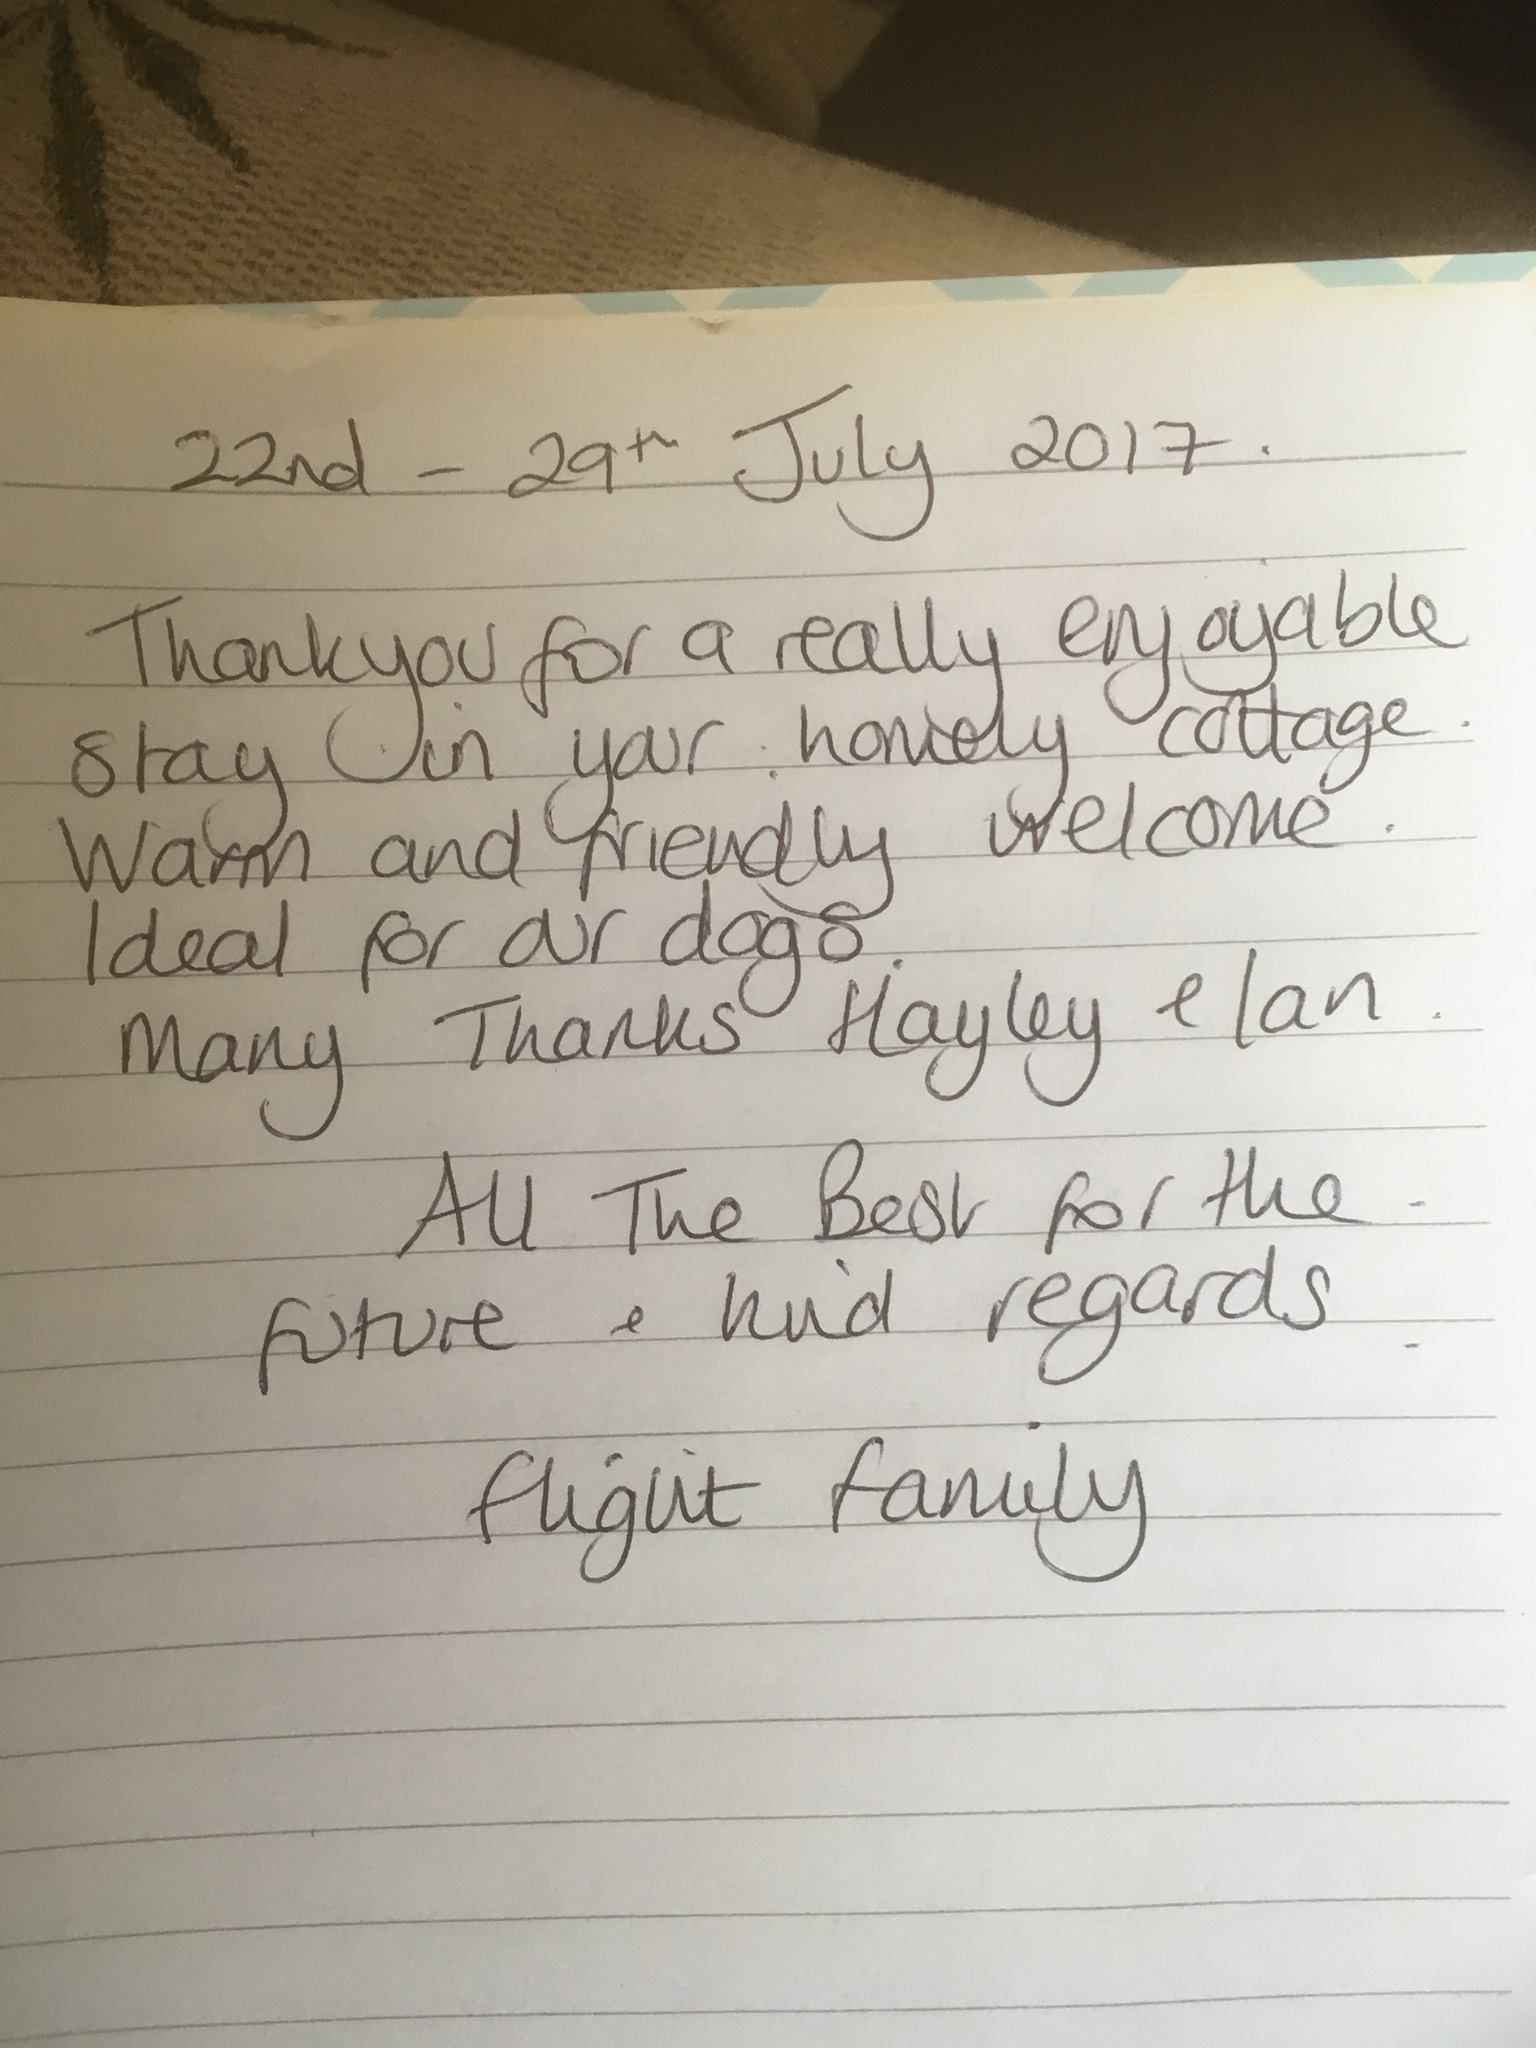 22nd - 29th July 2017.
Thankyou for a really enjoyable
stay in your homely cottage.
Warm and friendly welcome.
Ideal for our dogs.
Many Thanks Hayley & Ian.
All The Best for the
future & kind regards
flight family